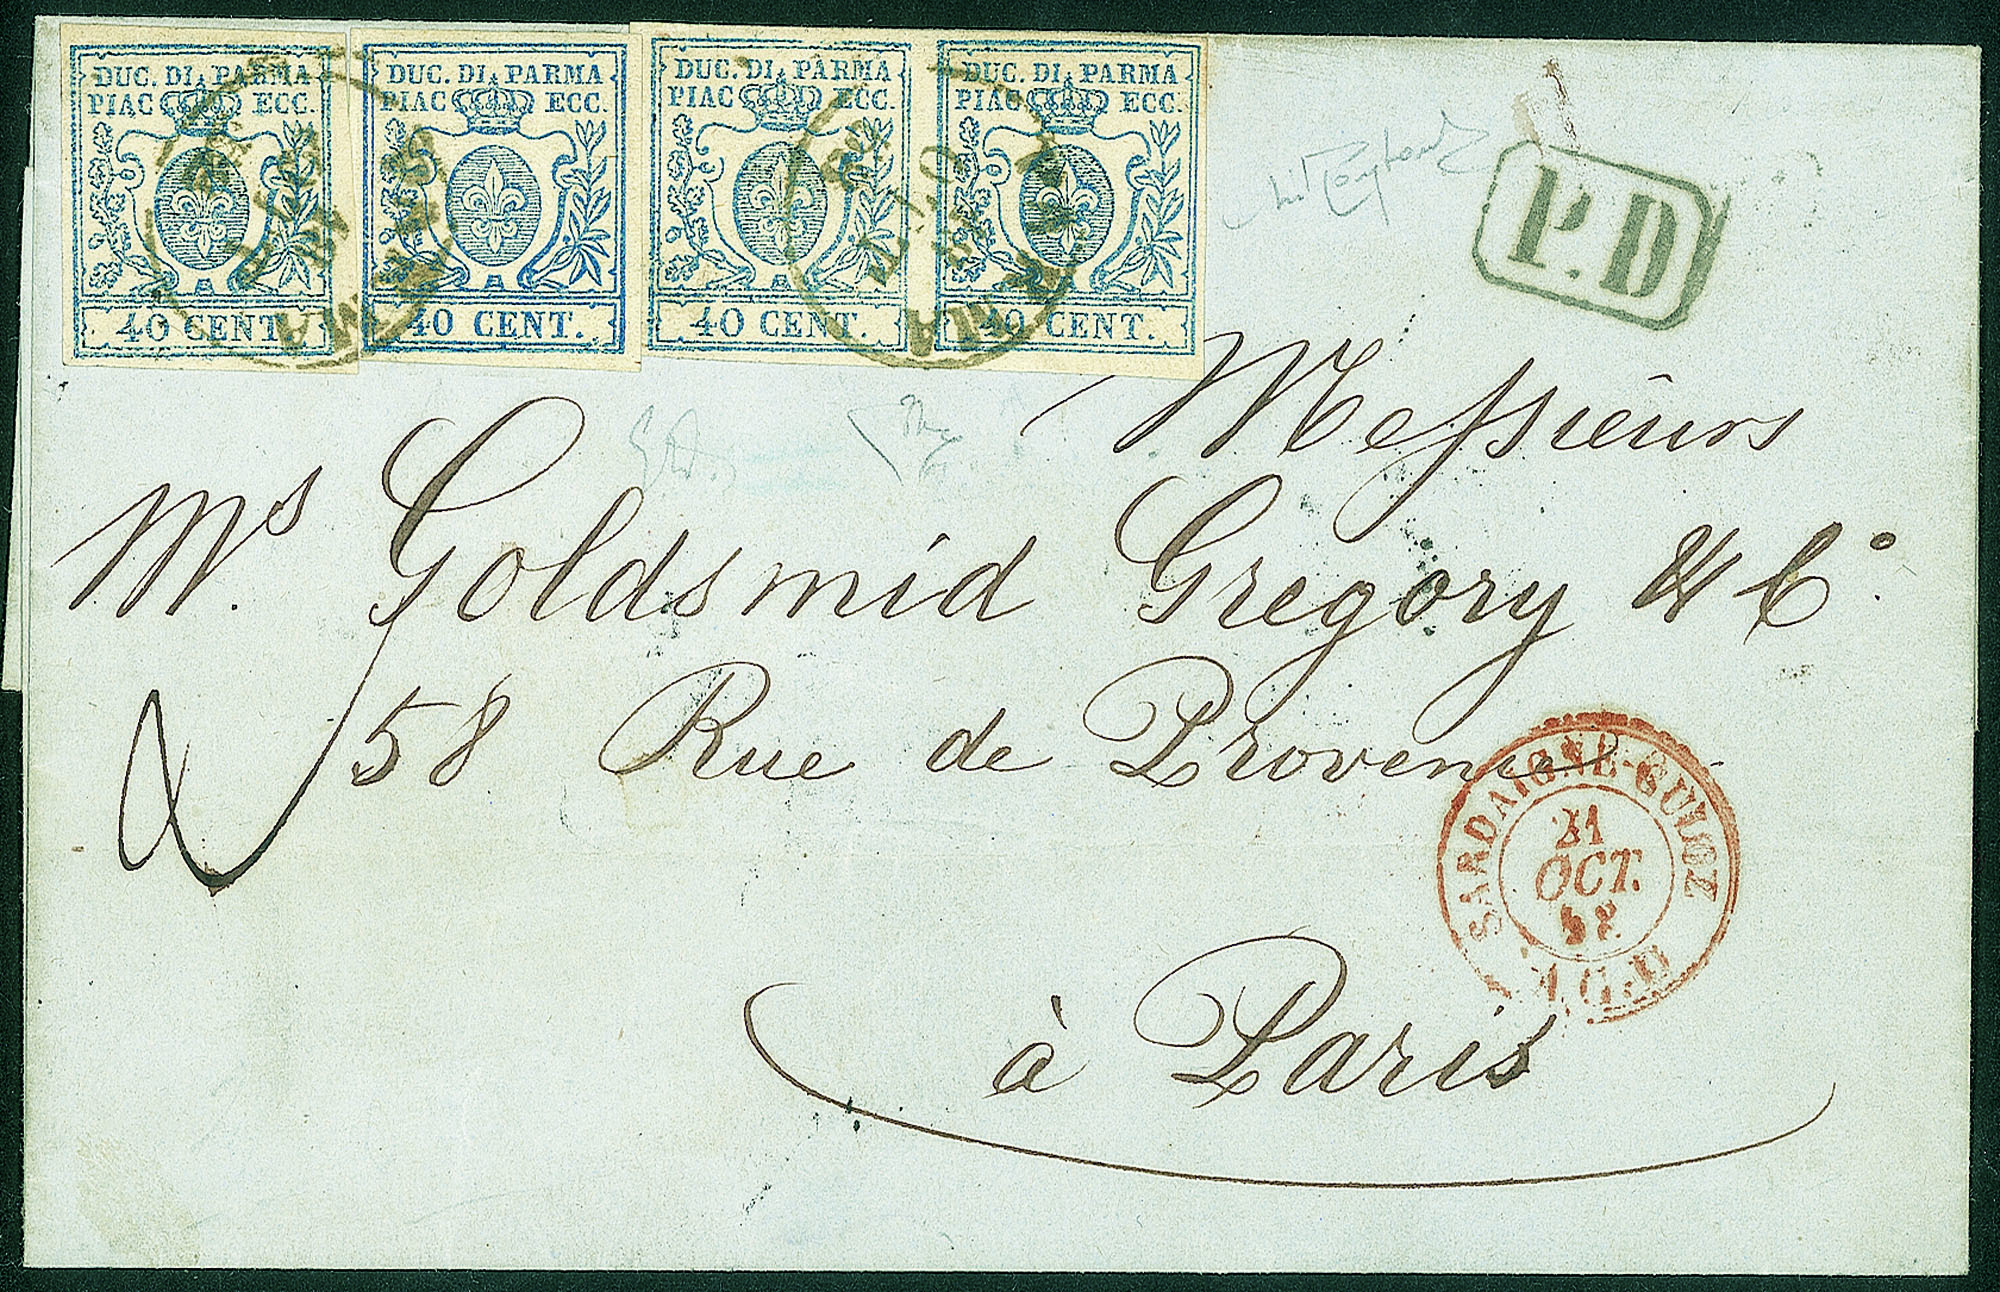 DUC. DI PARMA
PIAC ECC.
40 CENT.
DUC. DI PARMA
PIAC ECC.
40 CENT.
DUC. DI PARMA
PIAC ECC.
40 CENT.
DUC. DI PARMA
PIAC ECC.
40 CENT.
P.D
Messieurs
Ms. Goldsmid Gregory & Co.
58 Rue de Provence
à Paris
SARDAIGNE-CULOZ
21
OCT.
58